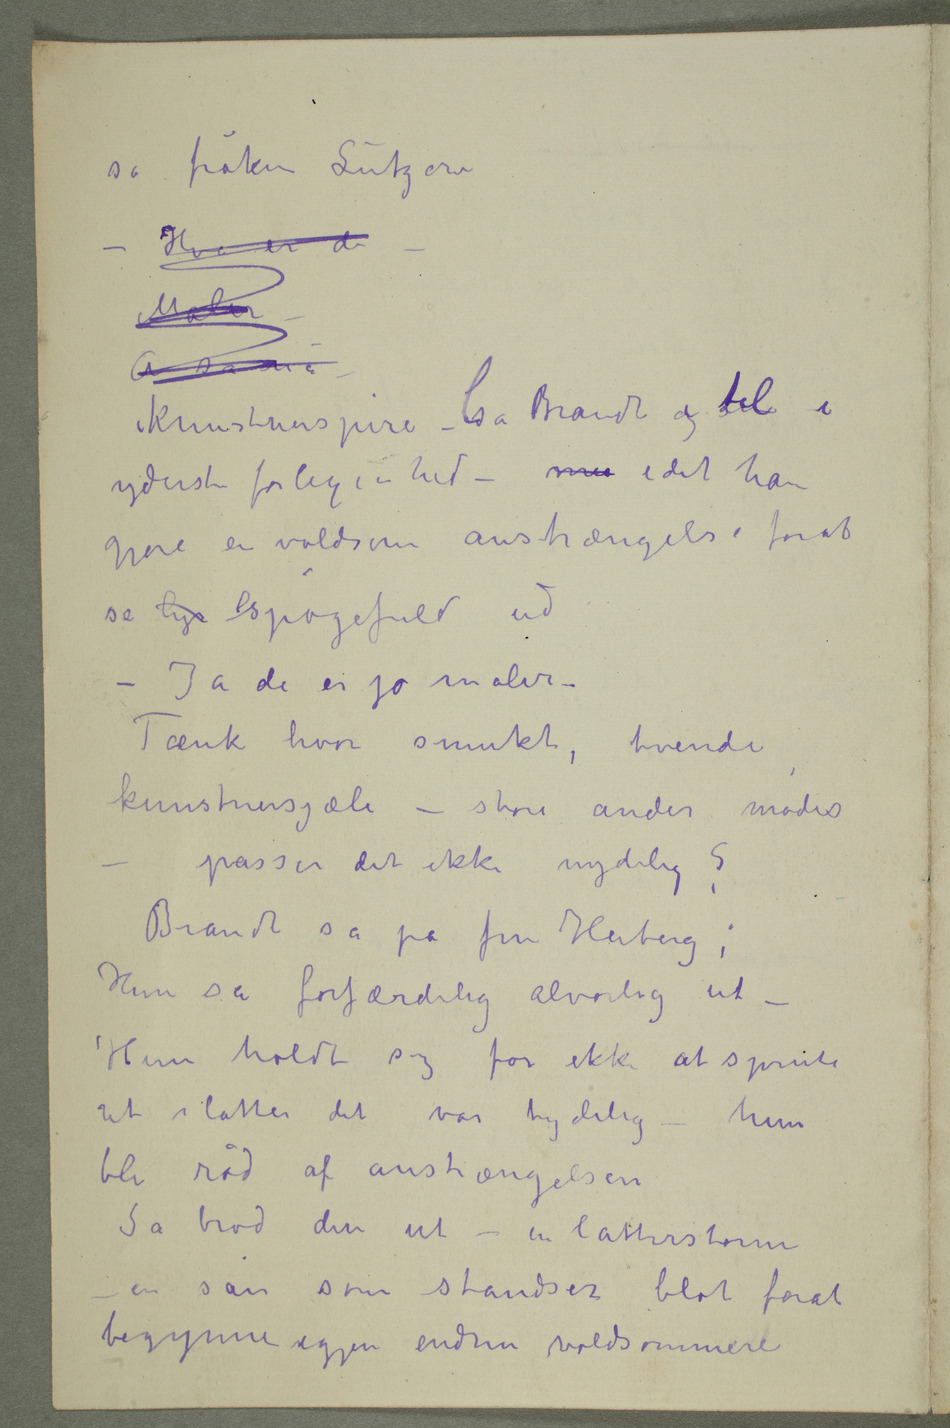 sa frøken Lützow
– Hva er de –
Maler –
A så nå –
Kunstnerspire – sa Brandt og ble i
yderste forlegenhed – idet han
gjore en voldsom anstrængelse forat
se lys spøgefuld ud
– Ja de er jo maler –
Tænk hvor smukt, tvende
kunstnersjæle – store ånder mødes
– passer det ikke nydelig?
Brandt så på fru Heiberg;
Hun så forfærdelig alvorlig ut –
Hun holdt seg for ikke at sprute
ut i latter det var tydelig – hun
ble rød af anstrængelsen
Så brød den ut – en latterstorm
– en sån som standser blot forat
begynne igjen endnu voldsommere